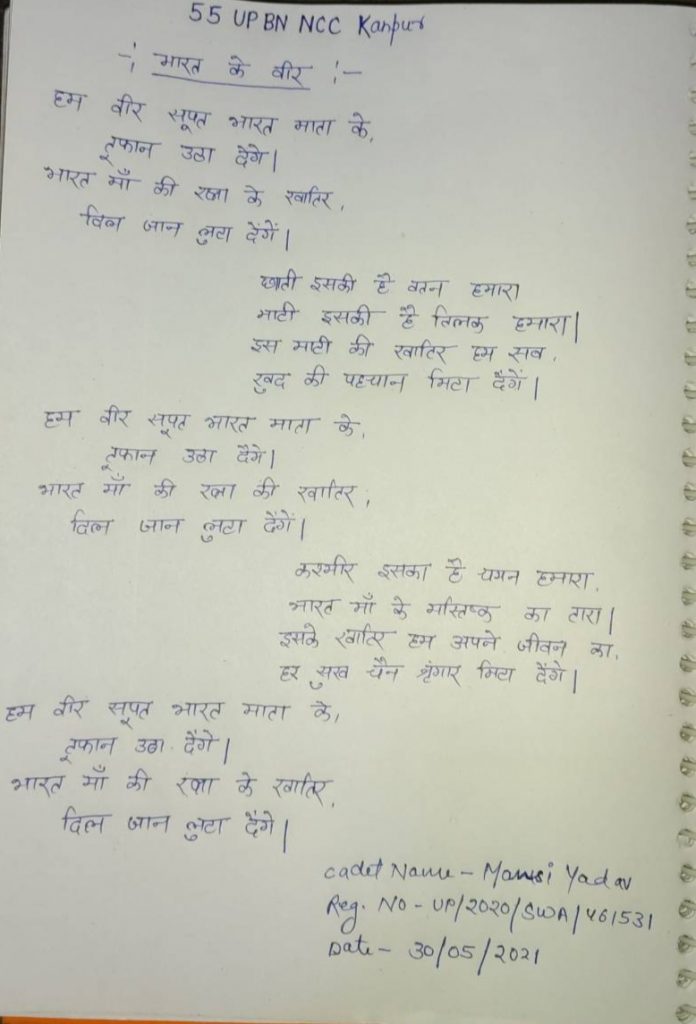 55 UP BN NCC Kanpur
-: भारत के वीर :-
हम वीर सूपत भारत माता के,
तूफान उठा देंगे।
भारत माँ की रक्षा के खातिर,
दिल जान लुटा देंगें।
छाती इसकी है वतन हमारा
माटी इसकी है तिलक हमारा।
इस माटी की खातिर हम सब,
खुद की पहचान मिटा देंगें।
हम वीर सूपत भारत माता के,
तूफान उठा देंगे।
भारत माँ की रक्षा की खातिर,
दिल जान लुटा देंगें।
कश्मीर इसका है चमन हमारा,
भारत माँ के मस्तिष्क का तारा।
इसके खातिर हम अपने जीवन का,
हर सुख चैन श्रृंगार मिटा देंगे।
हम वीर सूपत भारत माता के,
तूफान उठा देंगे।
भारत माँ की रक्षा के खातिर,
दिल जान लुटा देंगे।
Cadet Name - Mansi Yadav
Reg. No - UP/2020/SWA/461531
Date - 30/05/2021